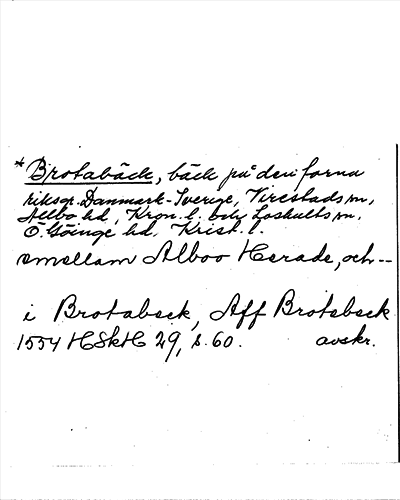 * Brotabäck, bäck på den forna
riksgr. Danmark-Sverige, Virestads sn,
Allbo hd, Kron. l. och Loshults sn,
Ö. Göinge hd, Krist. l.
emellam Alboo Herade, och --
i Brotabeck, Aff Brotabeck
1554 HSkH 29, s. 60. avskr.